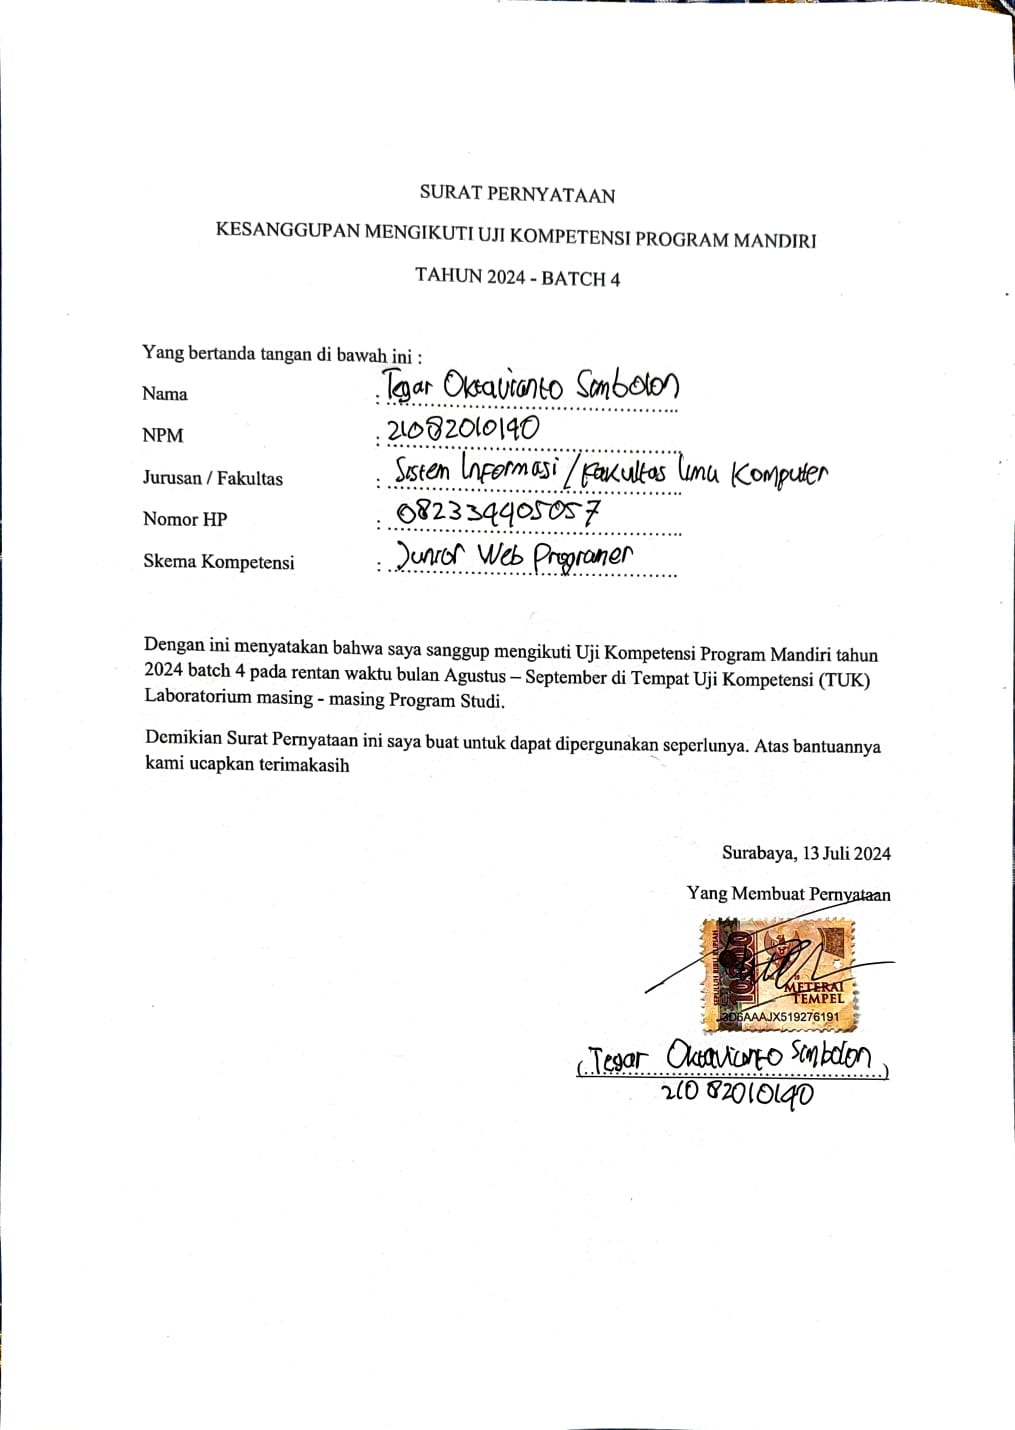 SURAT PERNYATAAN
KESANGGUPAN MENGIKUTI UJI KOMPETENSI PROGRAM MANDIRI
TAHUN 2024 - BATCH 4
Yang bertanda tangan di bawah ini :
Nama : Tegar Oktavianto Simbolon
NPM : 21082010190
Jurusan / Fakultas : Sistem Informasi / Fakultas Ilmu Komputer
Nomor HP : 082334405057
Skema Kompetensi : Junior Web Programer
Dengan ini menyatakan bahwa saya sanggup mengikuti Uji Kompetensi Program Mandiri tahun
2024 batch 4 pada rentan waktu bulan Agustus – September di Tempat Uji Kompetensi (TUK)
Laboratorium masing - masing Program Studi.
Demikian Surat Pernyataan ini saya buat untuk dapat dipergunakan seperlunya. Atas bantuannya
kami ucapkan terimakasih
Surabaya, 13 Juli 2024
Yang Membuat Pernyataan
SEPULUH RIBU RUPIAH
10000
METERAI
TEMPEL
(Tegar Oktavianto Simbolon)
21082010190